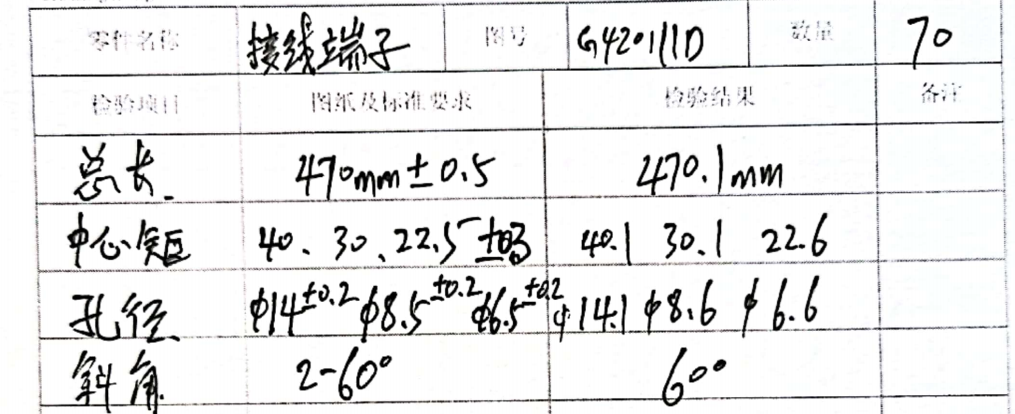 零件名称 接线端子 图号 G420111D 数量 70
检验项目 图纸及标准要求 检验结果 备注
总长 470mm±0.5 470.1mm
中心矩 40、30、22.5±0.3 40.1 30.1 22.6
孔径 φ14±0.2 φ8.5±0.2 φ6.5±0.2 φ14.1 φ8.6 φ6.6
斜角 2-60° 60°